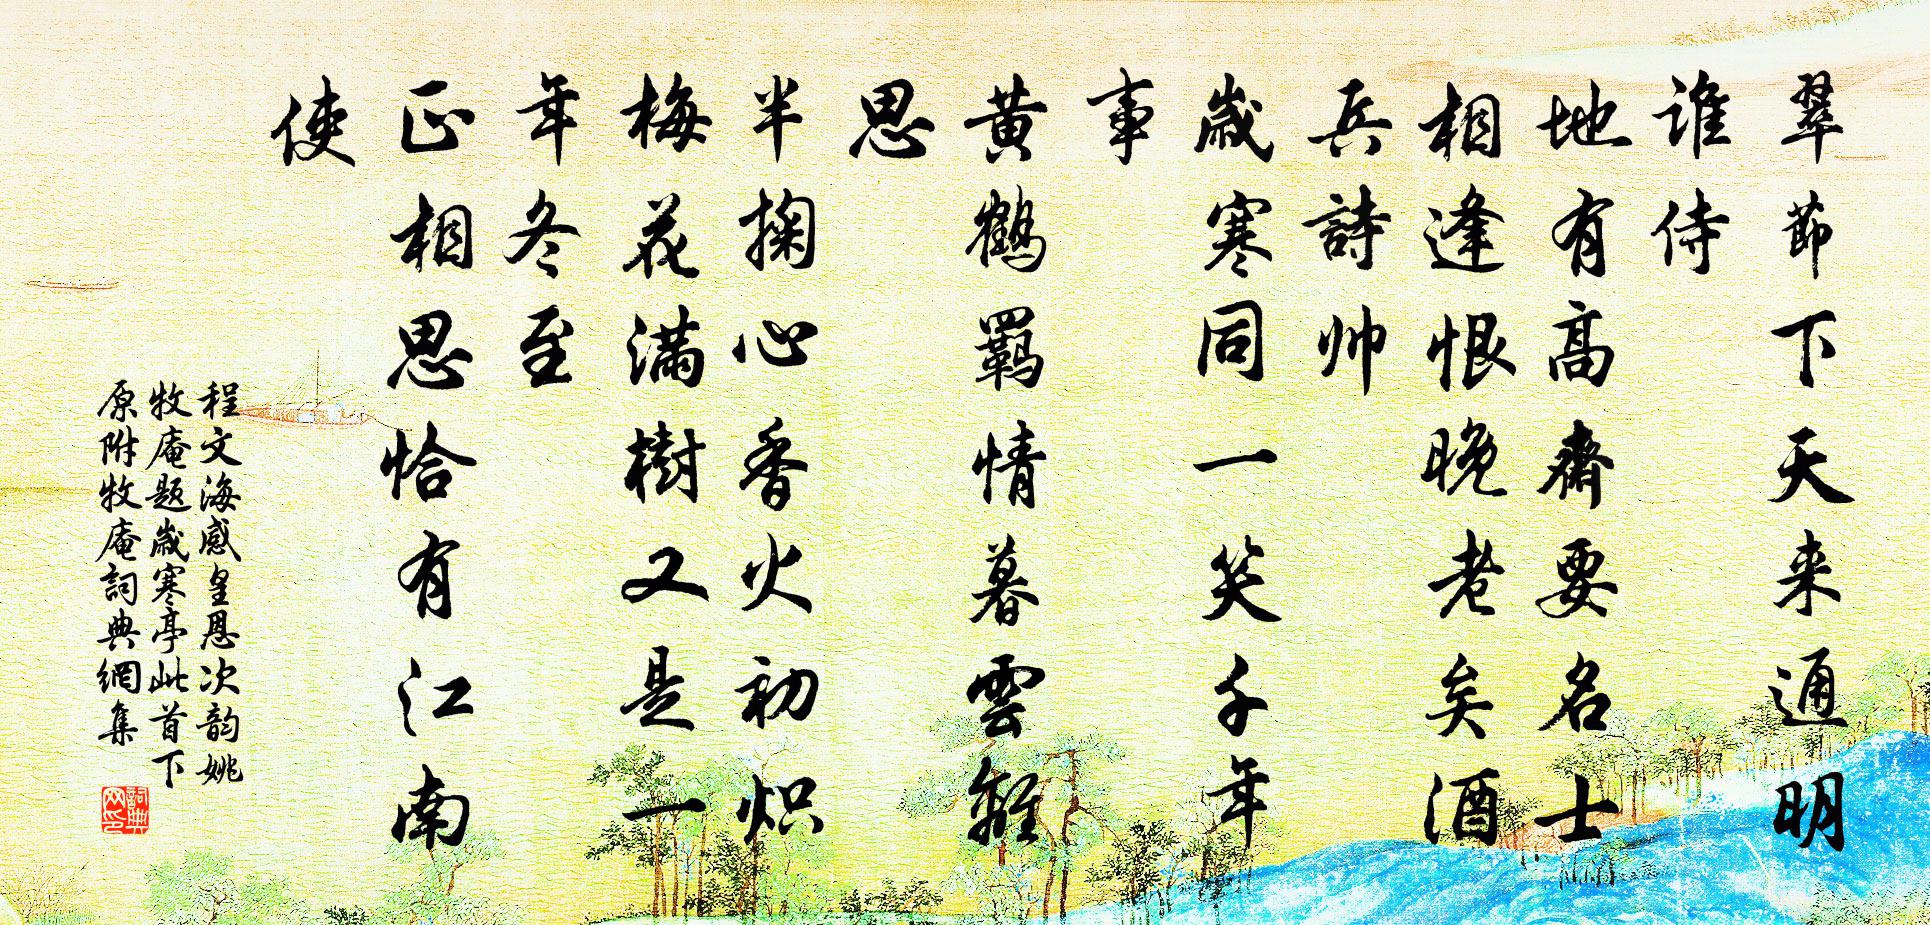 翠節下天来通明
誰侍
地有高齋要名士
相逢恨晚老矣酒
兵詩帅
歲寒同一笑千年
事
黄鶴羁情暮雲離
思
半掬心香火初炽
梅花滿樹又是一
年冬至
正相思恰有江南
使
程文海感皇恩次韵姚
牧庵题歲寒亭此首下
原附牧庵詞典網集
詞典网印